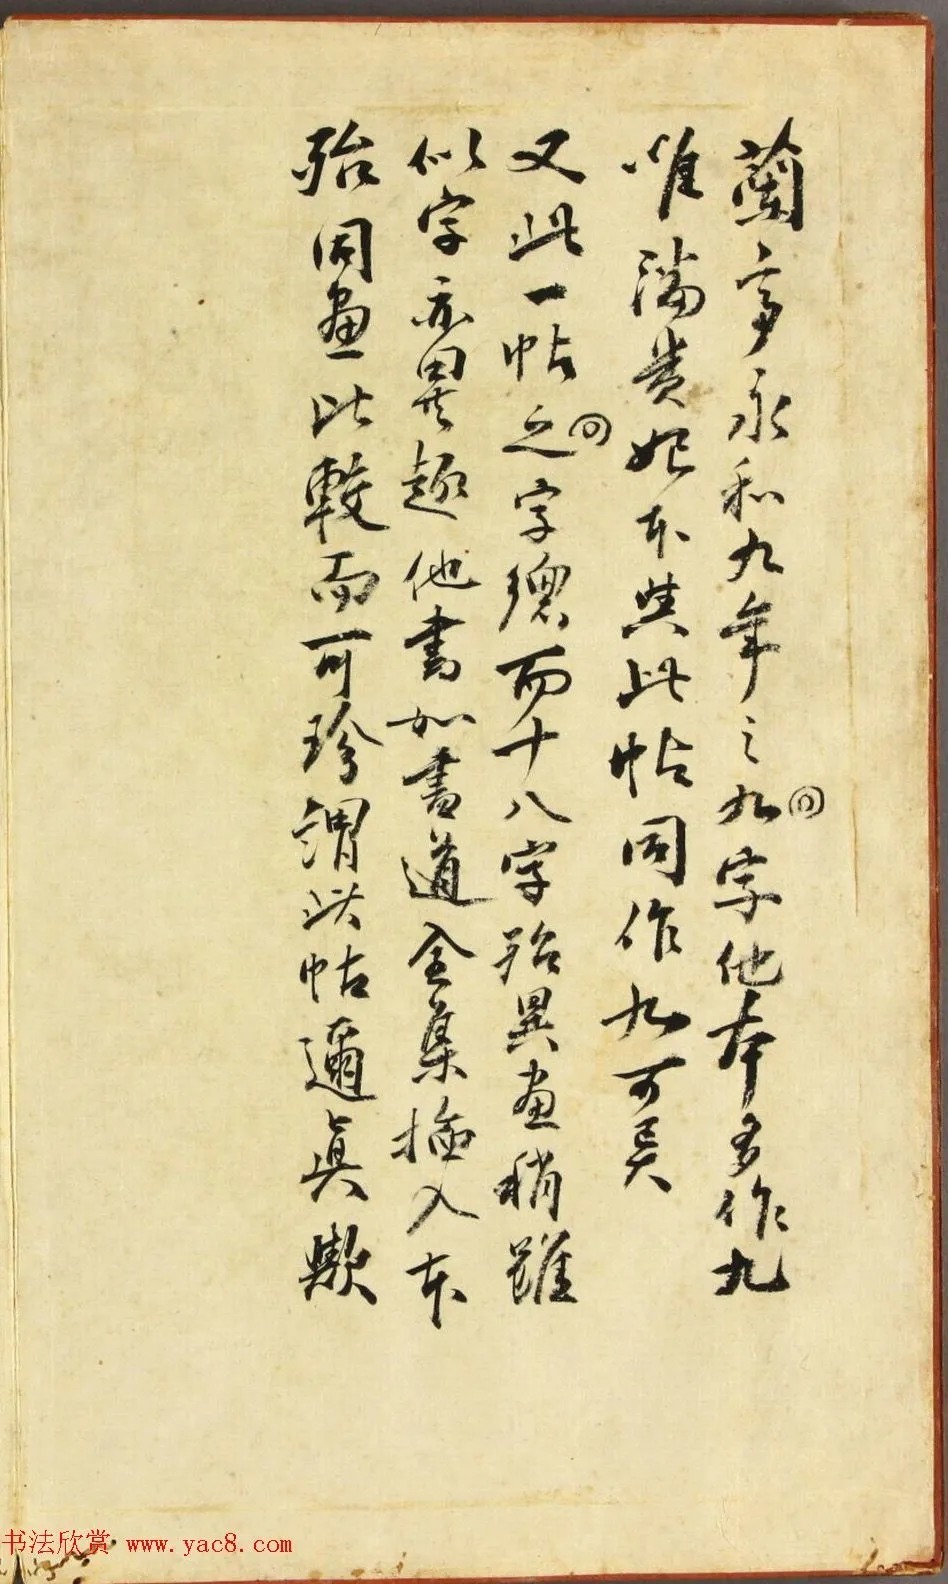 蘭亭永和九年之九字他本多作九
唯潘貴妃本與此帖同作九可異
又此一帖之字總而十八字殆異画稍雖
似字亦異趣他書如書道全集揷入本
殆同畫比較而可珍謂此帖邇眞歟
书法欣赏 www.yac8.com